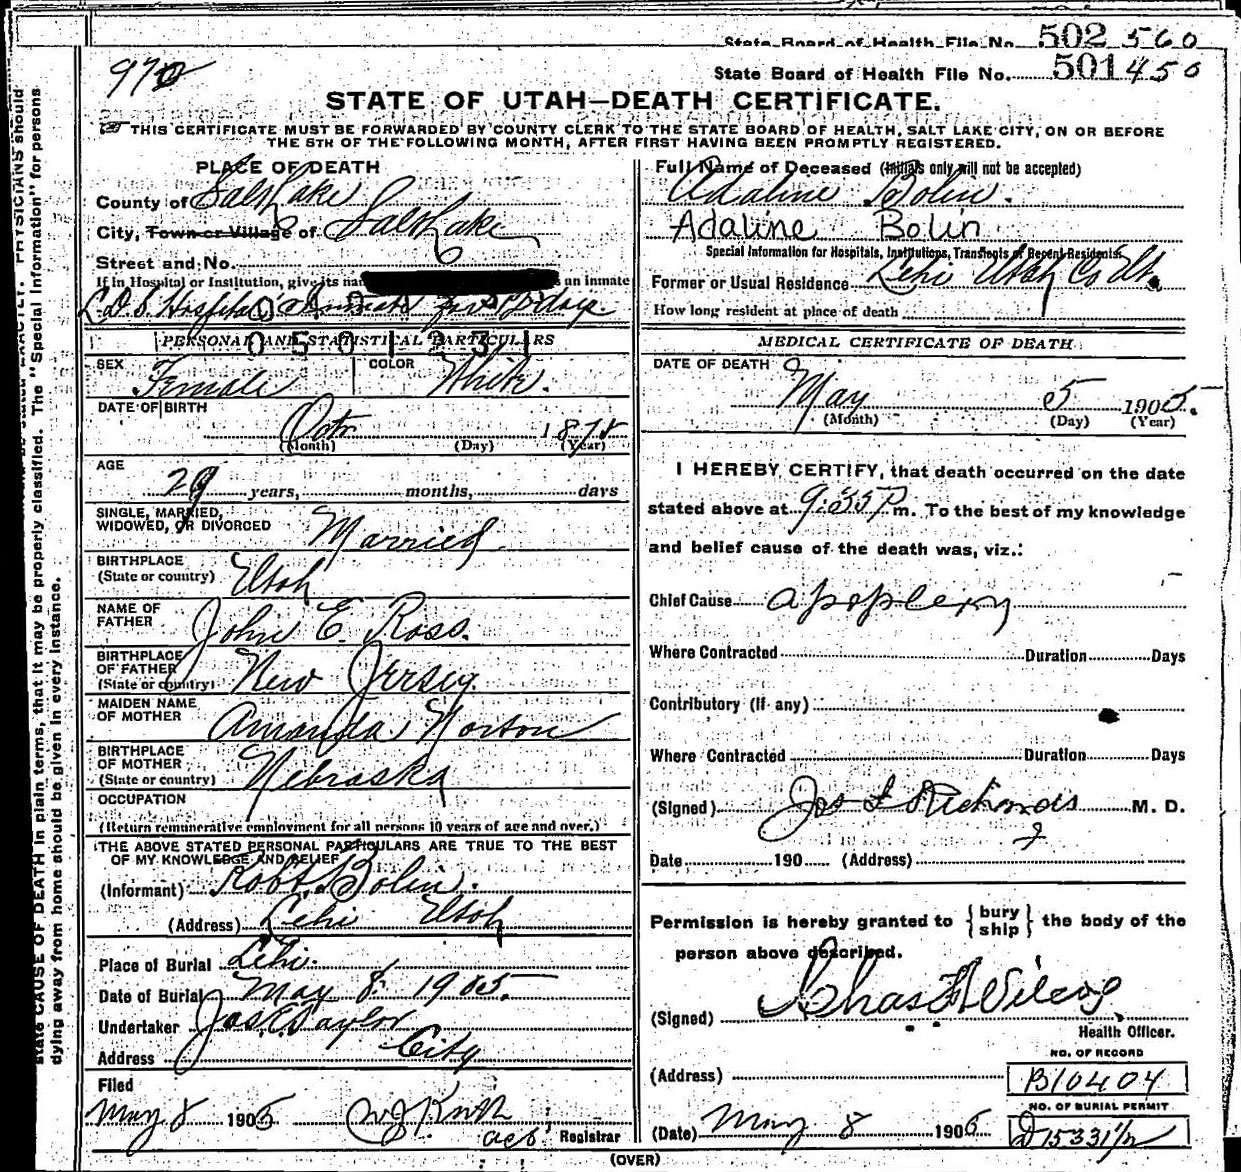 State Board of Health File No. 502 560
970
State Board of Health File No. 501 450
STATE OF UTAH—DEATH CERTIFICATE.
THIS CERTIFICATE MUST BE FORWARDED BY COUNTY CLERK TO THE STATE BOARD OF HEALTH, SALT LAKE CITY, ON OR BEFORE
THE 5TH OF THE FOLLOWING MONTH, AFTER FIRST HAVING BEEN PROMPTLY REGISTERED.
state CAUSE OF DEATH in plain terms, that it may be properly classified. The "Special Information" for persons
dying away from home should be given in every instance.
PLACE OF DEATH
County of Salt Lake
City, Town or Village of Salt Lake
Street and No.
If in Hospital or Institution, give its name s an inmate
L.D.S. Hospital
0501231
PERSONAL AND STATISTICAL PARTICULARS
SEX Female COLOR White.
DATE OF BIRTH
Octr 1878
(Month) (Day) (Year)
AGE
29 years, months, days
SINGLE, MARRIED,
WIDOWED, OR DIVORCED Married
BIRTHPLACE
(State or country) Utah
NAME OF
FATHER John E. Ross.
BIRTHPLACE
OF FATHER
(State or country) New Jersey.
MAIDEN NAME
OF MOTHER Amanda Norton
BIRTHPLACE
OF MOTHER
(State or country) Nebraska
OCCUPATION
(Return remunerative employment for all persons 10 years of age and over.)
THE ABOVE STATED PERSONAL PARTICULARS ARE TRUE TO THE BEST
OF MY KNOWLEDGE AND BELIEF
(Informant) Robt. Bolin.
(Address) Lehi Utah
Place of Burial Lehi.
Date of Burial May 8. 1905.
Undertaker Jos. E. Taylor
Address City
Filed
May 8 1905
act Registrar
Full Name of Deceased (Initials only will not be accepted)
Adaline Bolin.
Adaline Bolin
Special Information for Hospitals, Institutions, Transients or Recent Residents.
Former or Usual Residence Lehi Utah Co Ut.
How long resident at place of death
MEDICAL CERTIFICATE OF DEATH
DATE OF DEATH
May 5 1905.
(Month) (Day) (Year)
I HEREBY CERTIFY, that death occurred on the date
stated above at 9:35 P m. To the best of my knowledge
and belief cause of the death was, viz.:
Chief Cause Apoplexy
Where Contracted Duration Days
Contributory (If any)
Where Contracted Duration Days
(Signed) Jos S Richards M. D.
Date 190 (Address)
Permission is hereby granted to {bury ship} the body of the
person above described.
(Signed) Chas F Wilcox
Health Officer.
NO. OF RECORD
(Address) B10404
NO. OF BURIAL PERMIT
(Date) May 8 1905 D15331½
(OVER)